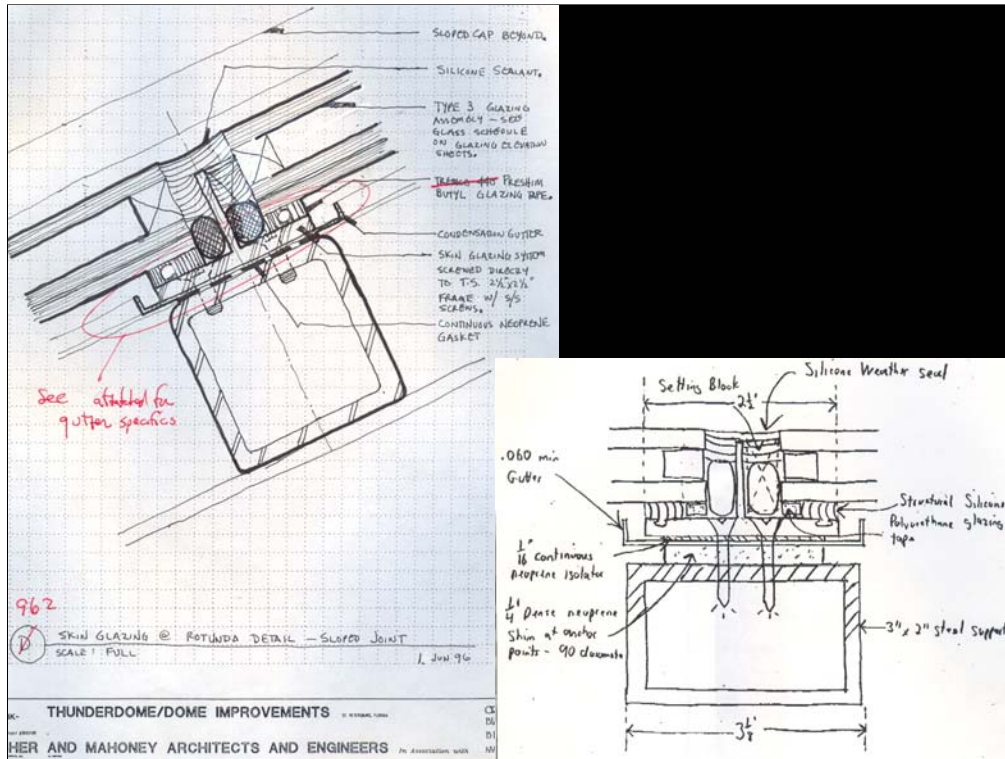 SLOPED CAP BEYOND.
SILICONE SEALANT.
TYPE 3 GLAZING
ASSEMBLY - SEE
GLASS SCHEDULE
ON GLAZING ELEVATION
SHEETS.
TREMCO 440 PRESHIM
BUTYL GLAZING TAPE.
CONDENSATION GUTTER
SKIN GLAZING SYSTEM
SCREWED DIRECTLY
TO T.S. 2½"x2½"
FRAME W/ S/S
SCREWS.
CONTINUOUS NEOPRENE
GASKET
See attatched for
gutter specifics
962
D
SKIN GLAZING @ ROTUNDA DETAIL - SLOPED JOINT
SCALE: FULL
1 JUN 96
THUNDERDOME/DOME IMPROVEMENTS
HER AND MAHONEY ARCHITECTS AND ENGINEERS In Association with
Silicone Weather seal
Setting Block
2½"
.060 min
Gutter
Structural Silicone
Polyurethane glazing
tape
1/16" Continuous
neoprene isolator
1/4" Dense neoprene
Shim at anchor
points - 90 durometer
3" x 2" Steel support
3⅛"